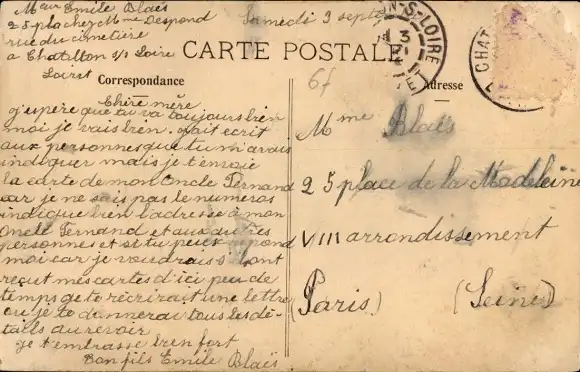 Mr Emile Blaës
25 place chez Mme Despond
rue du cimetière
a Chatillon s/s Loire
Loiret
Samedi 3 sept
CARTE POSTALE
Correspondance
Adresse
67
N-S-LOIRE
3
CHAT
Chère mère
j'espère que tu va toujours bien
moi je vais bien. j'ait ecrit
aux personnes que tu m'avais
indiquer mais je t'envoie
la carte de mon Oncle Fernand
car je ne sais pas le numeros
indique bien l'adresse à mon
Oncle Fernand et aux autres
personnes et si tu peux repond
moi car je voudrais s'ils ont
reçut mes cartes d'ici peu de
temps je te récrirait une lettre
ou je te donnerai tous les dé-
tails au revoir
je t'embrasse bien fort
Ton fils Emile Blaës
Mme Blaës
25 place de la Madeleine
VIII arrondissement
Paris) (Seine)